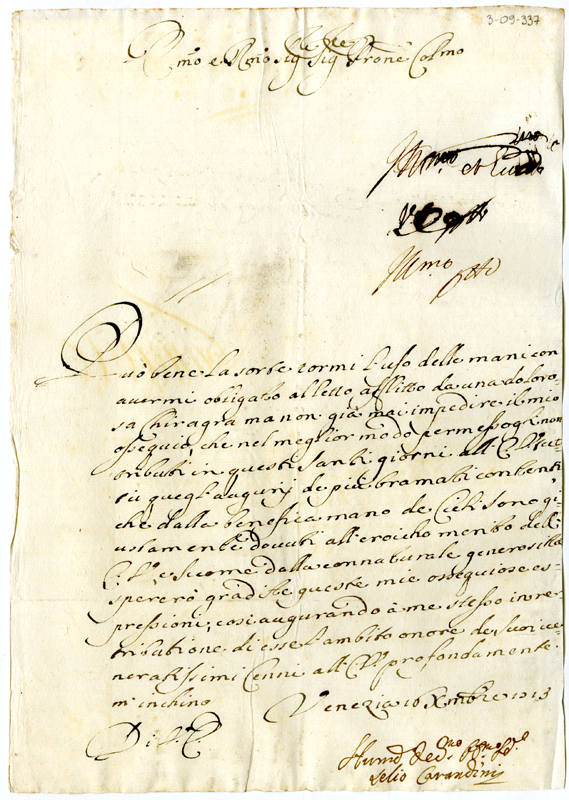 3-09-337
Emo e Rmo Sig Sig Prone Colmo
Illmo et
Illmo
Può bene la sorte tormi l'uso delle mani con
avermi obligato al letto afflitto da una doloro-
sa Chiragra ma non già mai impedire il mio
ossequio, che nel meglior modo permessogli non
tributi in questi santi giorni all' E. V. tut-
ti quegl'augurij de più bramati contenti,
che dalla benefica mano de Cieli sono gi-
ustamente dovuti all'eroicho merito dell'
E. V. e sicome dalla connaturale generosità
spererò gradite queste mie ossequiose es-
pressioni, così augurando à me stesso in re-
tributione di esse l'ambito onore de suoi ve-
neratissimi Cenni all' E. V. profondamente
m'inchino
Venezia 16 Xmbre 1713
Di V. E.
Humo Devmo
Lelio Carandini